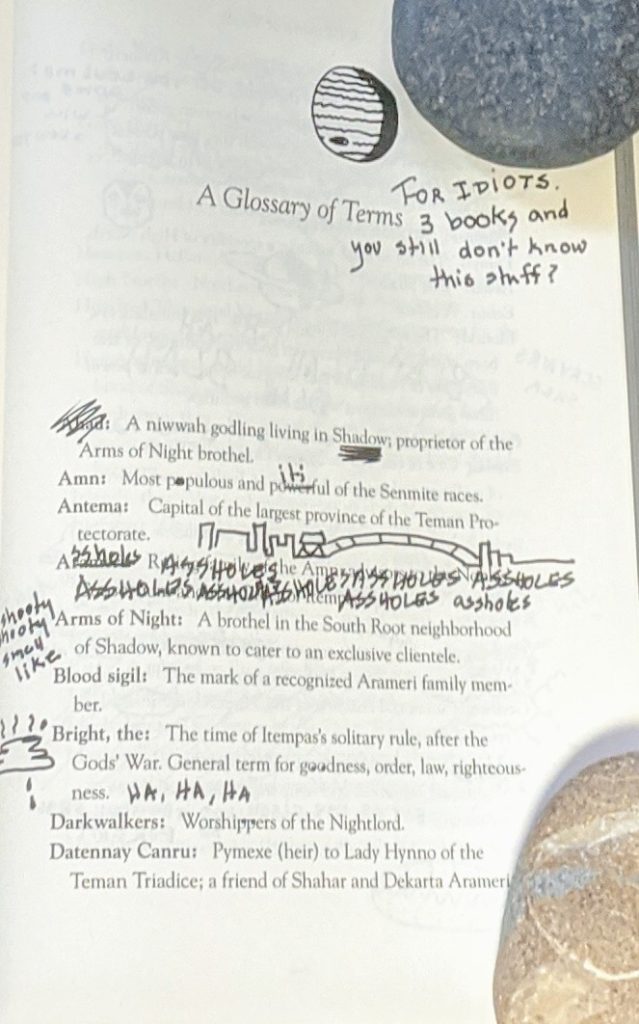 FOR IDIOTS.
A Glossary of Terms 3 books and
you still don't know
this stuff?
A niwwah godling living in Shadow; proprietor of the
Arms of Night brothel.
iti
Amn: Most populous and powerful of the Senmite races.
Antema: Capital of the largest province of the Teman Pro-
tectorate.
assholes ASSHOLES ASSHOLES ASSHOLES
ASSHOLES ASSHOLES ASSHOLES ASSHOLES assholes
Arms of Night: A brothel in the South Root neighborhood
of Shadow, known to cater to an exclusive clientele.
like
Blood sigil: The mark of a recognized Arameri family mem-
ber.
Bright, the: The time of Itempas's solitary rule, after the
Gods' War. General term for goodness, order, law, righteous-
ness. HA, HA, HA
Darkwalkers: Worshippers of the Nightlord.
Datennay Canru: Pymexe (heir) to Lady Hynno of the
Teman Triadice; a friend of Shahar and Dekarta Arameri